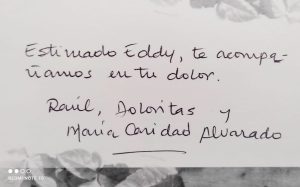 Estimado Eddy, te acompa-
ñamos en tu dolor.
Raúl, Doloritas y
María Caridad Alvarado